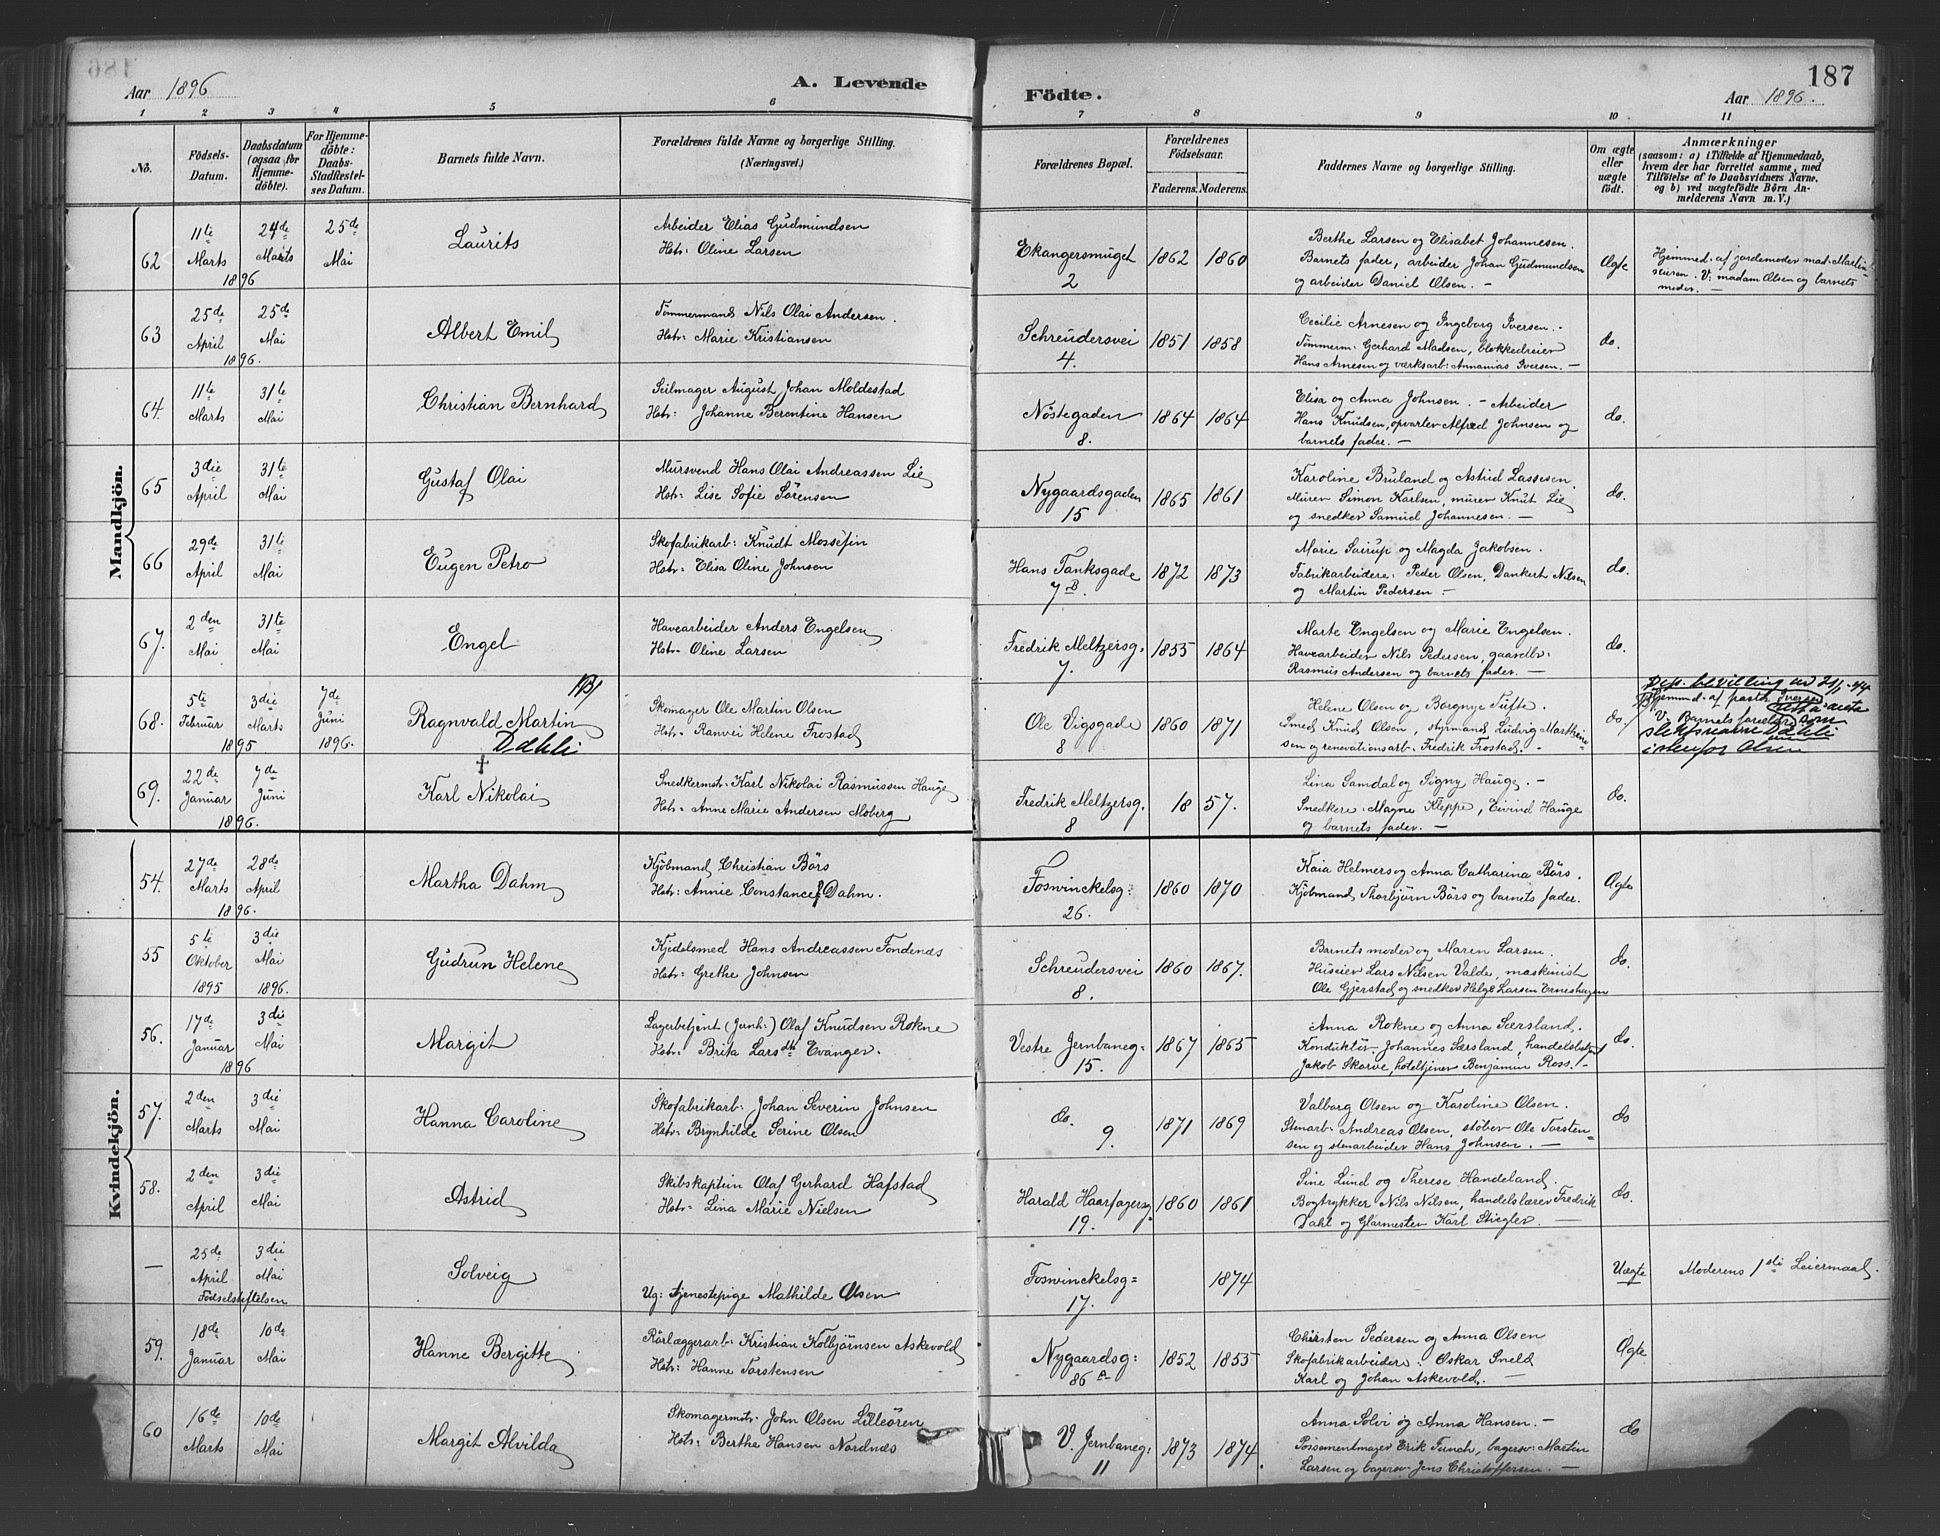 186
187
Aar 1896
A. Levende Födte.
Aar 1896.
1 2 3 4 5 6 7 8 9 10 11
No.
Födsels-Datum.
Daabsdatum (ogsaa for Hjemmedöbte).
For Hjemmedöbte: Daabs-Stadfæstelses Datum.
Barnets fulde Navn.
Forældrenes fulde Navne og borgerlige Stilling. (Næringsvei.)
Forældrenes Bopæl.
Forældrenes Födselsaar.
Faderens. Moderens.
Faddernes Navne og borgerlige Stilling.
Om ægte eller uægte födt.
Anmærkninger
(saasom: a) i Tilfælde af Hjemmedaab,
hvem der har forrettet samme, med
Tilföielse af to Daabsvidners Navne.
og b) ved uægtefödte Börn An-
melderens Navn m. V.)
Mandkjön.
62 11te Marts 1896 24de Marts 25de Mai
Laurits
Arbeider Elias Gudmundsen
Hstr: Oline Larsen
Ekangersmuget 2
1862 1860
Berthe Larsen og Elisabet Johannesen.
Barnets fader, arbeider Johan Gudmundsen
og arbeider Daniel Olsen. —
Ægte
Hjemmed. af jordemoder mad. Martin-
sen. V: madam Olsen og barnets
moder. —
63 25de April 1896. 25de Mai
Albert Emil
Tömmermand Nils Olai Andersen.
Hstr: Marie Kristiansen
Schreudersvei 4.
1851 1858
Cecilie Arnesen og Ingeborg Iversen. -
Tömmerm: Gerhard Madsen, blokkedreier
Hans Arnesen og værksarb: Annanias Iversen. —
do.
64. 11te Marts 31te Mai
Christian Bernhard
Seilmager August Johan Moldestad
Hstr: Johanne Berentine Hansen
Nöstegaden 8.
1864 1864
Elisa og Anna Johnsen. - Arbeider
Hans Knudsen, opvarter Alfred Johnsen og
barnets fader. —
do.
65 3die April 31te Mai
Gustaf Olai
Mursvend Hans Olai Andreassen Lie
Hstr: Lise Sofie Sörensen
Nygaardsgaden 15
1865 1861
Karoline Bruland og Astrid Lassesen.
Murer Simon Karlsen, murer Knut Lie
og snedker Samuel Johannesen. —
do.
66 29de April 31te Mai
Eugen Petro
Skofabrikarb: Knudt Mossefin
Hstr: Elisa Oline Johnsen
Hans Tanksgade 7B.
1872 1873
Marie Sairup og Magda Jakobsen.
Fabrikarbeidere: Peder Olsen, Dankert Nilsen
og Martin Pedersen —
do.
67. 2den Mai 31te Mai
Engel
Havearbeider Anders Engelsen
Hstr: Oline Larsen
Fredrik Meltzersg. 7.
1855 1864
Marte Engelsen og Marie Engelsen.
Havearbeider Nils Pedersen, gaardbr:
Rasmus Andersen og barnets fader. —
do.
68. 5te Februar 3die Marts 1895 7de Juni 1896.
Ragnvald Martin
Dæhli
Skomager Ole Martin Olsen
Hstr: Ranvei Helene Frostad
Ole Vigsgade 8
1860 1871
Helene Olsen og Borgnye Tufte.
Smed Knud Olsen, styrmand Ludvig Marthine-
sen og renovationsarb: Fredrik Frostad. -
do.
Dep. bevilling av 21/1-44
Hjemmed. af pastor Iversen
V. Barnets forældre
som slektsnavn Dæhli
istenfor Olsen
69. 22de Januar 1896. 7de Juni
†
Karl Nikolai
Snedkermstr: Karl Nikolai Rasmussen Hauge
Hstr: Anne Marie Andersen Moberg
Fredrik Meltzersg. 8
1857.
Lina Samdal og Signy Hauge. —
Snedkere: Magne Kleppe, Eivind Hauge
og barnets fader. —
do.
Kvindekjön.
54. 27de Marts 1896. 28de April
Martha Dahm
Kjöbmand Christian Börs
Hstr: Annie Constance Dahm.
Fosvinckelsg: 26.
1860 1870
Kaia Helmers og Anna Catharina Börs.
Kjöbmand Thorbjörn Börs og barnets fader.
Ægte
55 5te Oktober 1895 3die Mai 1896.
Gudrun Helene
Kjedelsmed Hans Andreassen Fondenæs
Hstr: Grethe Johnsen
Schreudersvei 8.
1860 1867.
Barnets moder og Maren Larsen.
Huseier Lars Nilsen Valde, maskinist
Ole Gjerstad og snedker Helge Larsen Erneshagen
do.
56. 17de Januar 1896 3die Mai
Margit
Lagerbetjent (Jernb:) Olaf Knudsen Rokne
Hstr: Brita Larsdtr Evanger.
Vestre Jernbaneg= 15.
1867 1865
Anna Rokne og Anna Særsland.
Konduktör Johannes Særsland, handelsbetjent
Jakob Skorve, hoteltjener Benjamin Ross. -
do.
57. 2den Marts 3die Mai
Hanna Caroline
Skofabrikarb: Johan Severin Johnsen
Hstr: Brynhilde Serine Olsen
do. 9.
1871 1869
Valborg Olsen og Karoline Olsen.
Stenarb: Andreas Olsen, stöber Ole Torsten=
sen og stenarbeider Hans Johnsen. —
do
58. 2den April 3die Mai
Astrid
Skibskaptein Olaf Gerhard Hafstad
Hstr: Lina Marie Nielsen
Harald Haarfagersg. 19.
1860 1861
Sine Lund og Therese Handeland.
Bogtrykker Nils Nilsen, handelslærer Fredrik
Dahl og Glarmester Karl Stiegler. —
do.
— 25de April 3die Mai
Födselstiftelsen
Solveig
Ug: tjenestepige Mathilde Olsen
Fosvinckelsg= 17.
1874
Uægte
Moderens 1ste Leiermaal.
59. 18de Januar 10de Mai
Hanne Bergitte
Rörlæggerarb: Kristian Kolbjörnsen Askevold
Hstr: Hanne Torstensen
Nygaardsg: 86 A
1852 1855
Chirsten Pedersen og Anna Olsen
Skofabrikarbeidere: Oskar Sneld
Karl og Johan Askevold. —
Ægte
60 16de Marts 10de Mai
Margit Alvilda
Skomagermstr: John Olsen Lilleören
Hstr: Berthe Hansen Nordnæs
V. Jernbaneg: 11
1873 1874
Anna Solvi og Anna Hansen. —
Possementmager Erik Tunch, bagersv: Martin
Larsen og bagersv: Jens Christoffersen. —
do